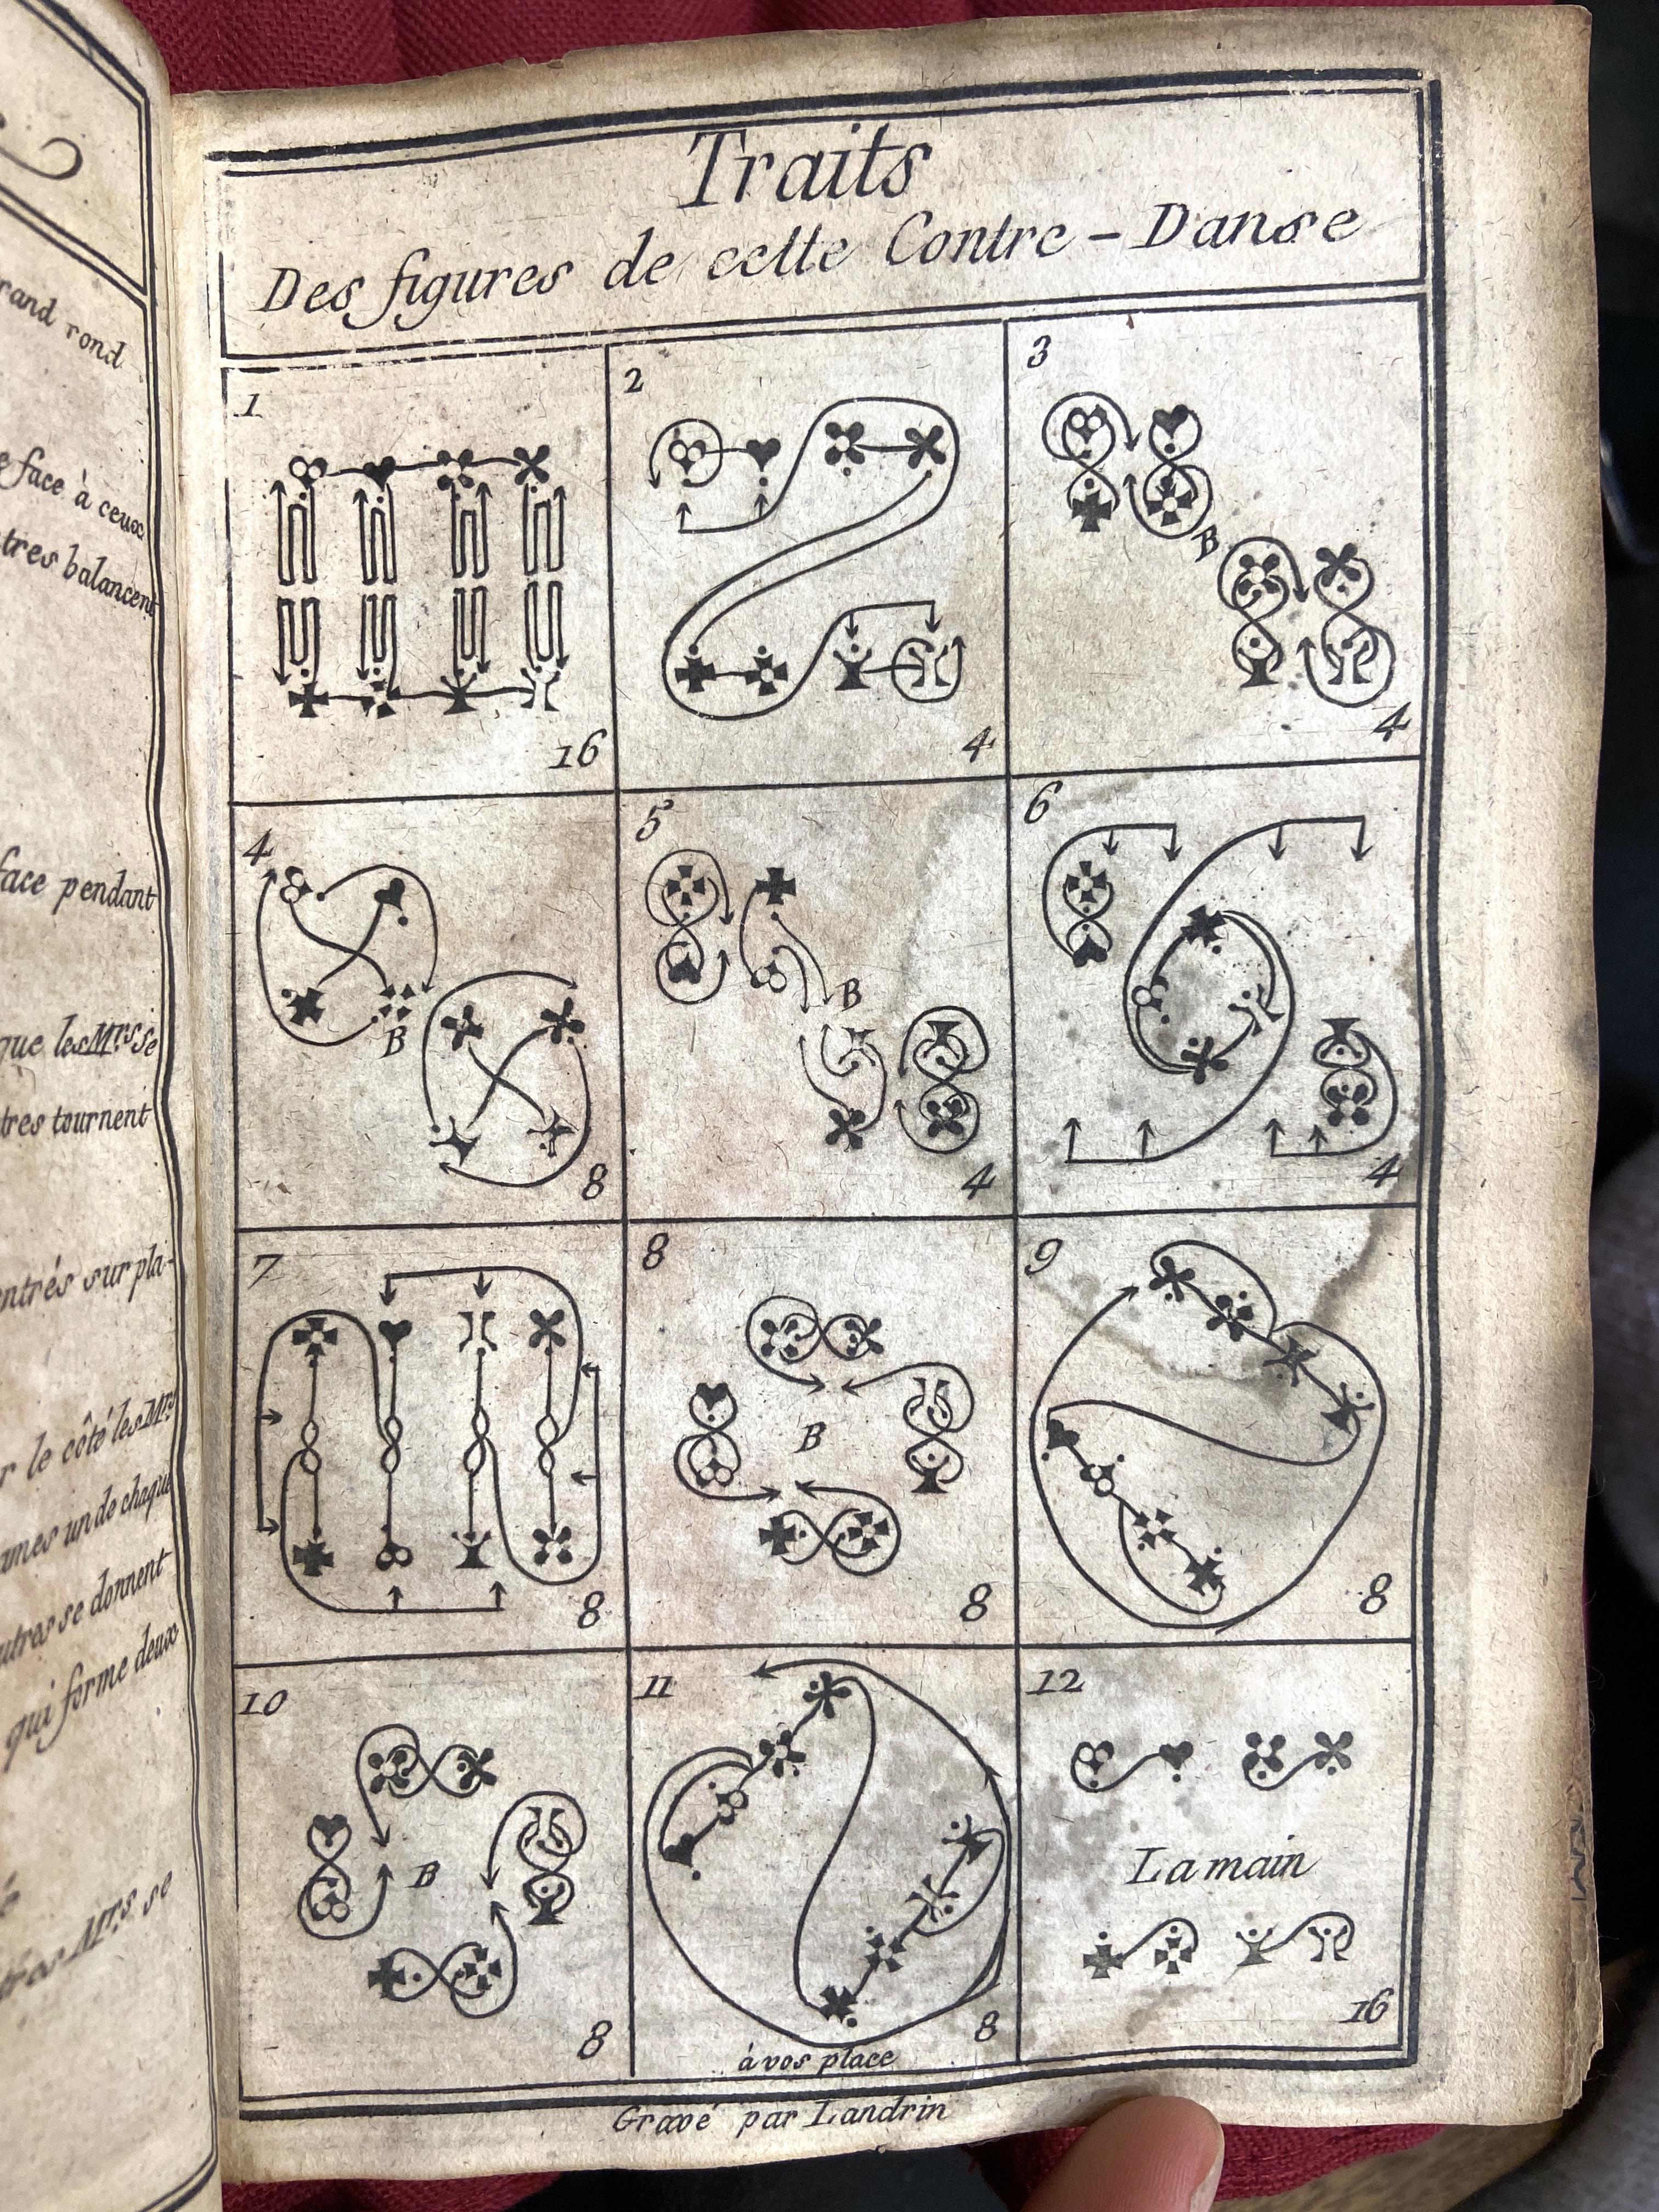 rand rond
face à ceux
tres balancent
face pendant
que les Mrs se
tres tournent
entrés sur pla-
r le côté les Mrs
ames un de chaque
utres se donnent
qui forme deux
Mrs se
Traits
Des figures de cette Contre-Danse
1
16
2
4
3
B
4
4
B
8
5
B
4
6
4
7
8
8
B
8
9
8
10
B
8
11
8
à vos place
12
La main
16
Gravé par Landrin